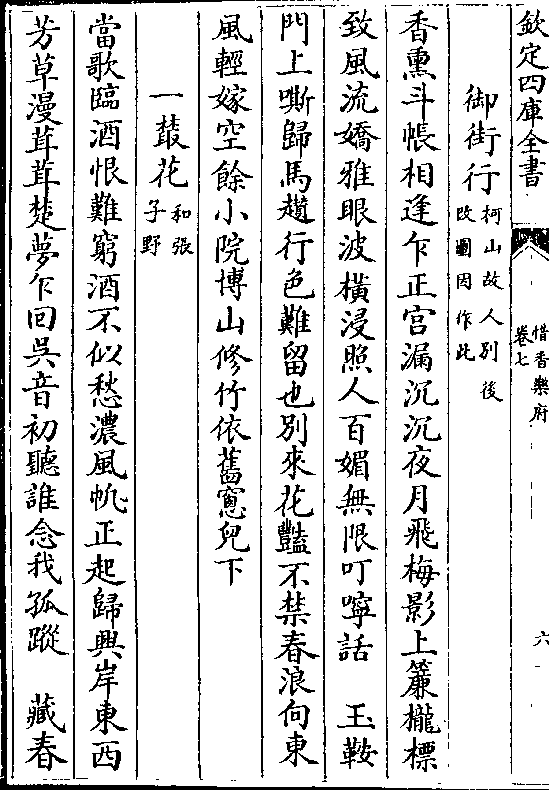 欽定四庫全書
惜香樂府
卷七
六
御街行柯山故人別後
改圖因作此
香熏斗帳相逢乍正宮漏沉沉夜月飛梅影上簾櫳標
致風流嬌雅眼波橫浸照人百媚無限叮嚀話　玉鞍
門上嘶歸馬趲行色難留也別來花豔不禁春浪向東
風輕嫁空餘小院博山修竹依舊窻兒下
一叢花和張
子野
當歌臨酒恨難窮酒不似愁濃風帆正起歸興岸東西
芳草漫茸茸楚夢乍回吳音初聽誰念我孤蹤　藏春